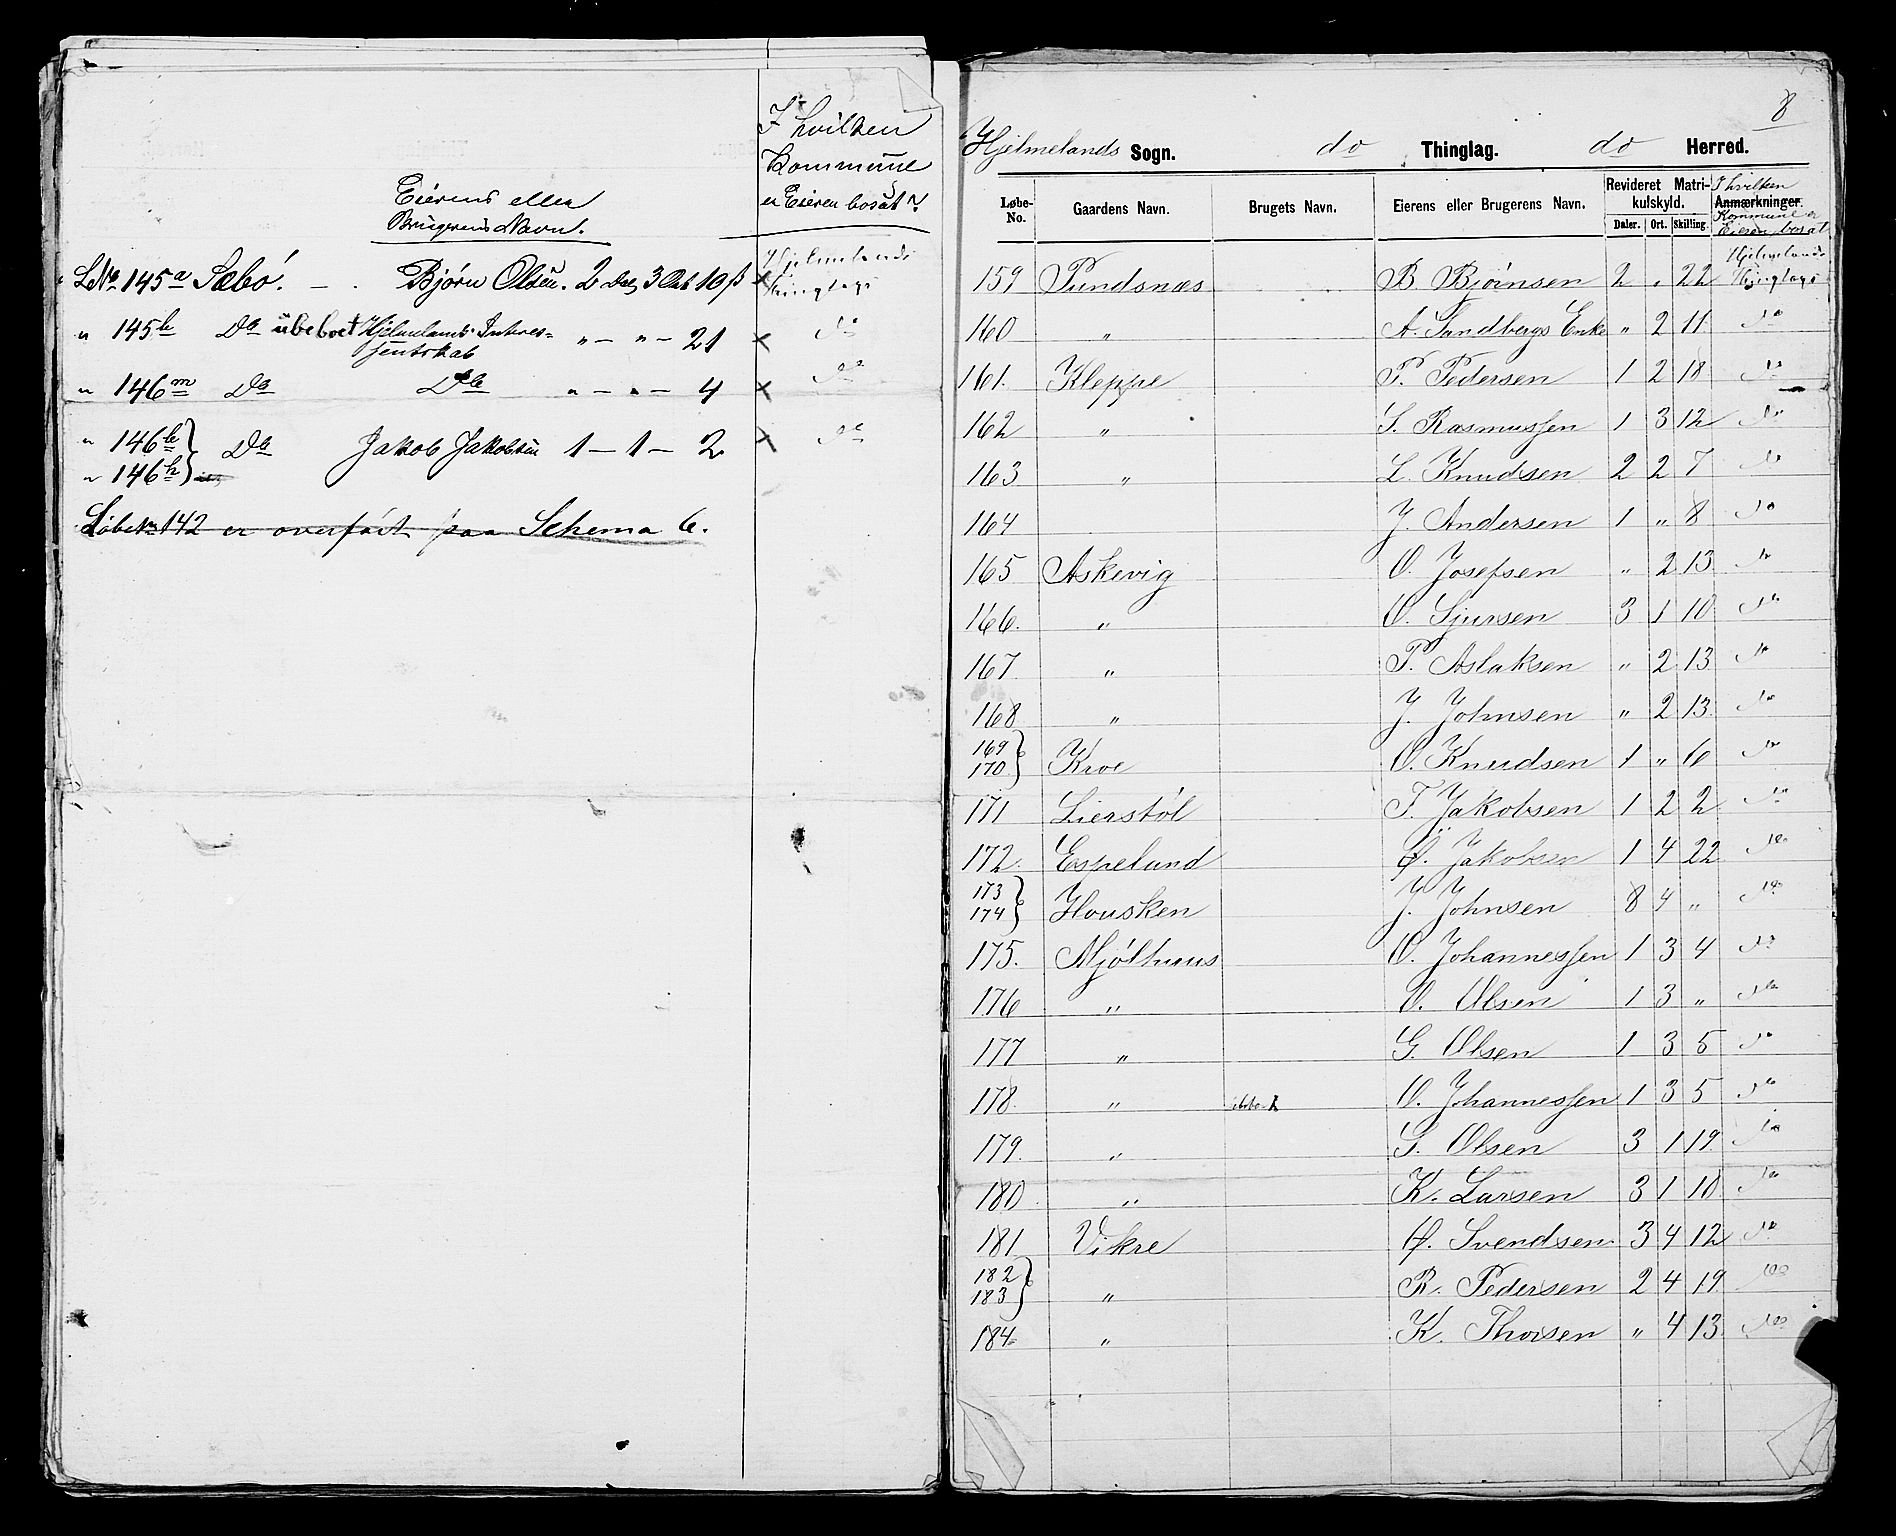 I hvilken
Kommune
er Eieren bosat?
Eierens eller
Brugerens Navn.
LNo 145a Sæbø. Bjørn Olsen. 2 Dal, 3 Ort 19 β x Hjelmelands Thinglag
" 145b Do ubeboet Hjelmelands Interes-
sentskab " — " — 21 x do
" 146m Do Do " — " — 4 x do
" 146b } Do Jakob Jakobsen 1 — 1 — 2 x do
" 146h }
Løbe No 142 er overført paa Schema 6.
8
Hjelmelands Sogn. do Thinglag. do Herred.
Løbe-No. Gaardens Navn. Brugets Navn. Eierens eller Brugerens Navn. Revideret Matrikulskyld. Anmærkninger.
Daler. Ort. Skilling.
I hvilken
Kommune er
Eieren bosat
159 Pundsnæs B. Bjørnsen 2 " 22 Hjelmelands Thinglag
160 " A. Sandbergs Enke " 2 11 do
161. Kleppe P. Pedersen 1 2 18 do
162 " S. Rasmussen 1 3 12 do
163 " L. Knudsen 2 2 7 do
164 J. Andersen 1 " 8 do
165 Askevig O. Josefsen " 2 13 do
166. " O. Sjursen 3 1 10 do
167. " P. Aslaksen " 2 13 do
168 " J. Johnsen " 2 13. do
169 } Kroe O. Knudsen 1 " 6 do
170 }
171 Lierstøl T. Jakobsen 1 2 2 do
172. Espelund Ø. Jakobsen 1 4 22 do
173 } Housken J. Johnsen 8 4 " do
174 }
175. Mjølhuus O. Johannessen 1 3 4 do
176 " O. Olsen 1 3 " do
177 " G. Olsen 1 3 5 do
178. " O. Johannessen 1 3 5 do
179. " G. Olsen 3 1 19. do
180. " K. Larsen 3 1 10 do
181 Vikre Ø. Svendsen 3 4 12 do
182 } " R. Pedersen 2 4 19 do
183 }
184 " K. Thorsen " 4 13. do